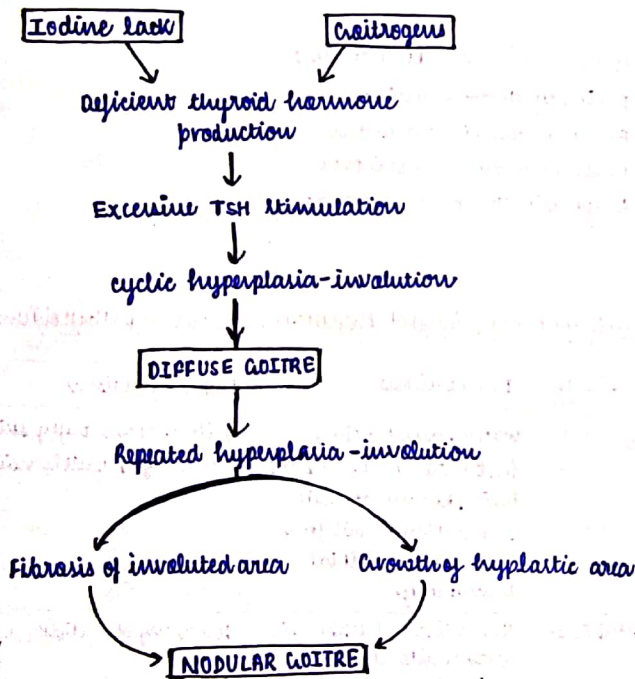 Iodine lack
Goitrogens
Deficient thyroid hormone
production
Excessive TSH stimulation
cyclic hyperplasia-involution
DIFFUSE GOITRE
Repeated hyperplasia-involution
Fibrosis of involuted area
Growth of hyplastic area
NODULAR GOITRE